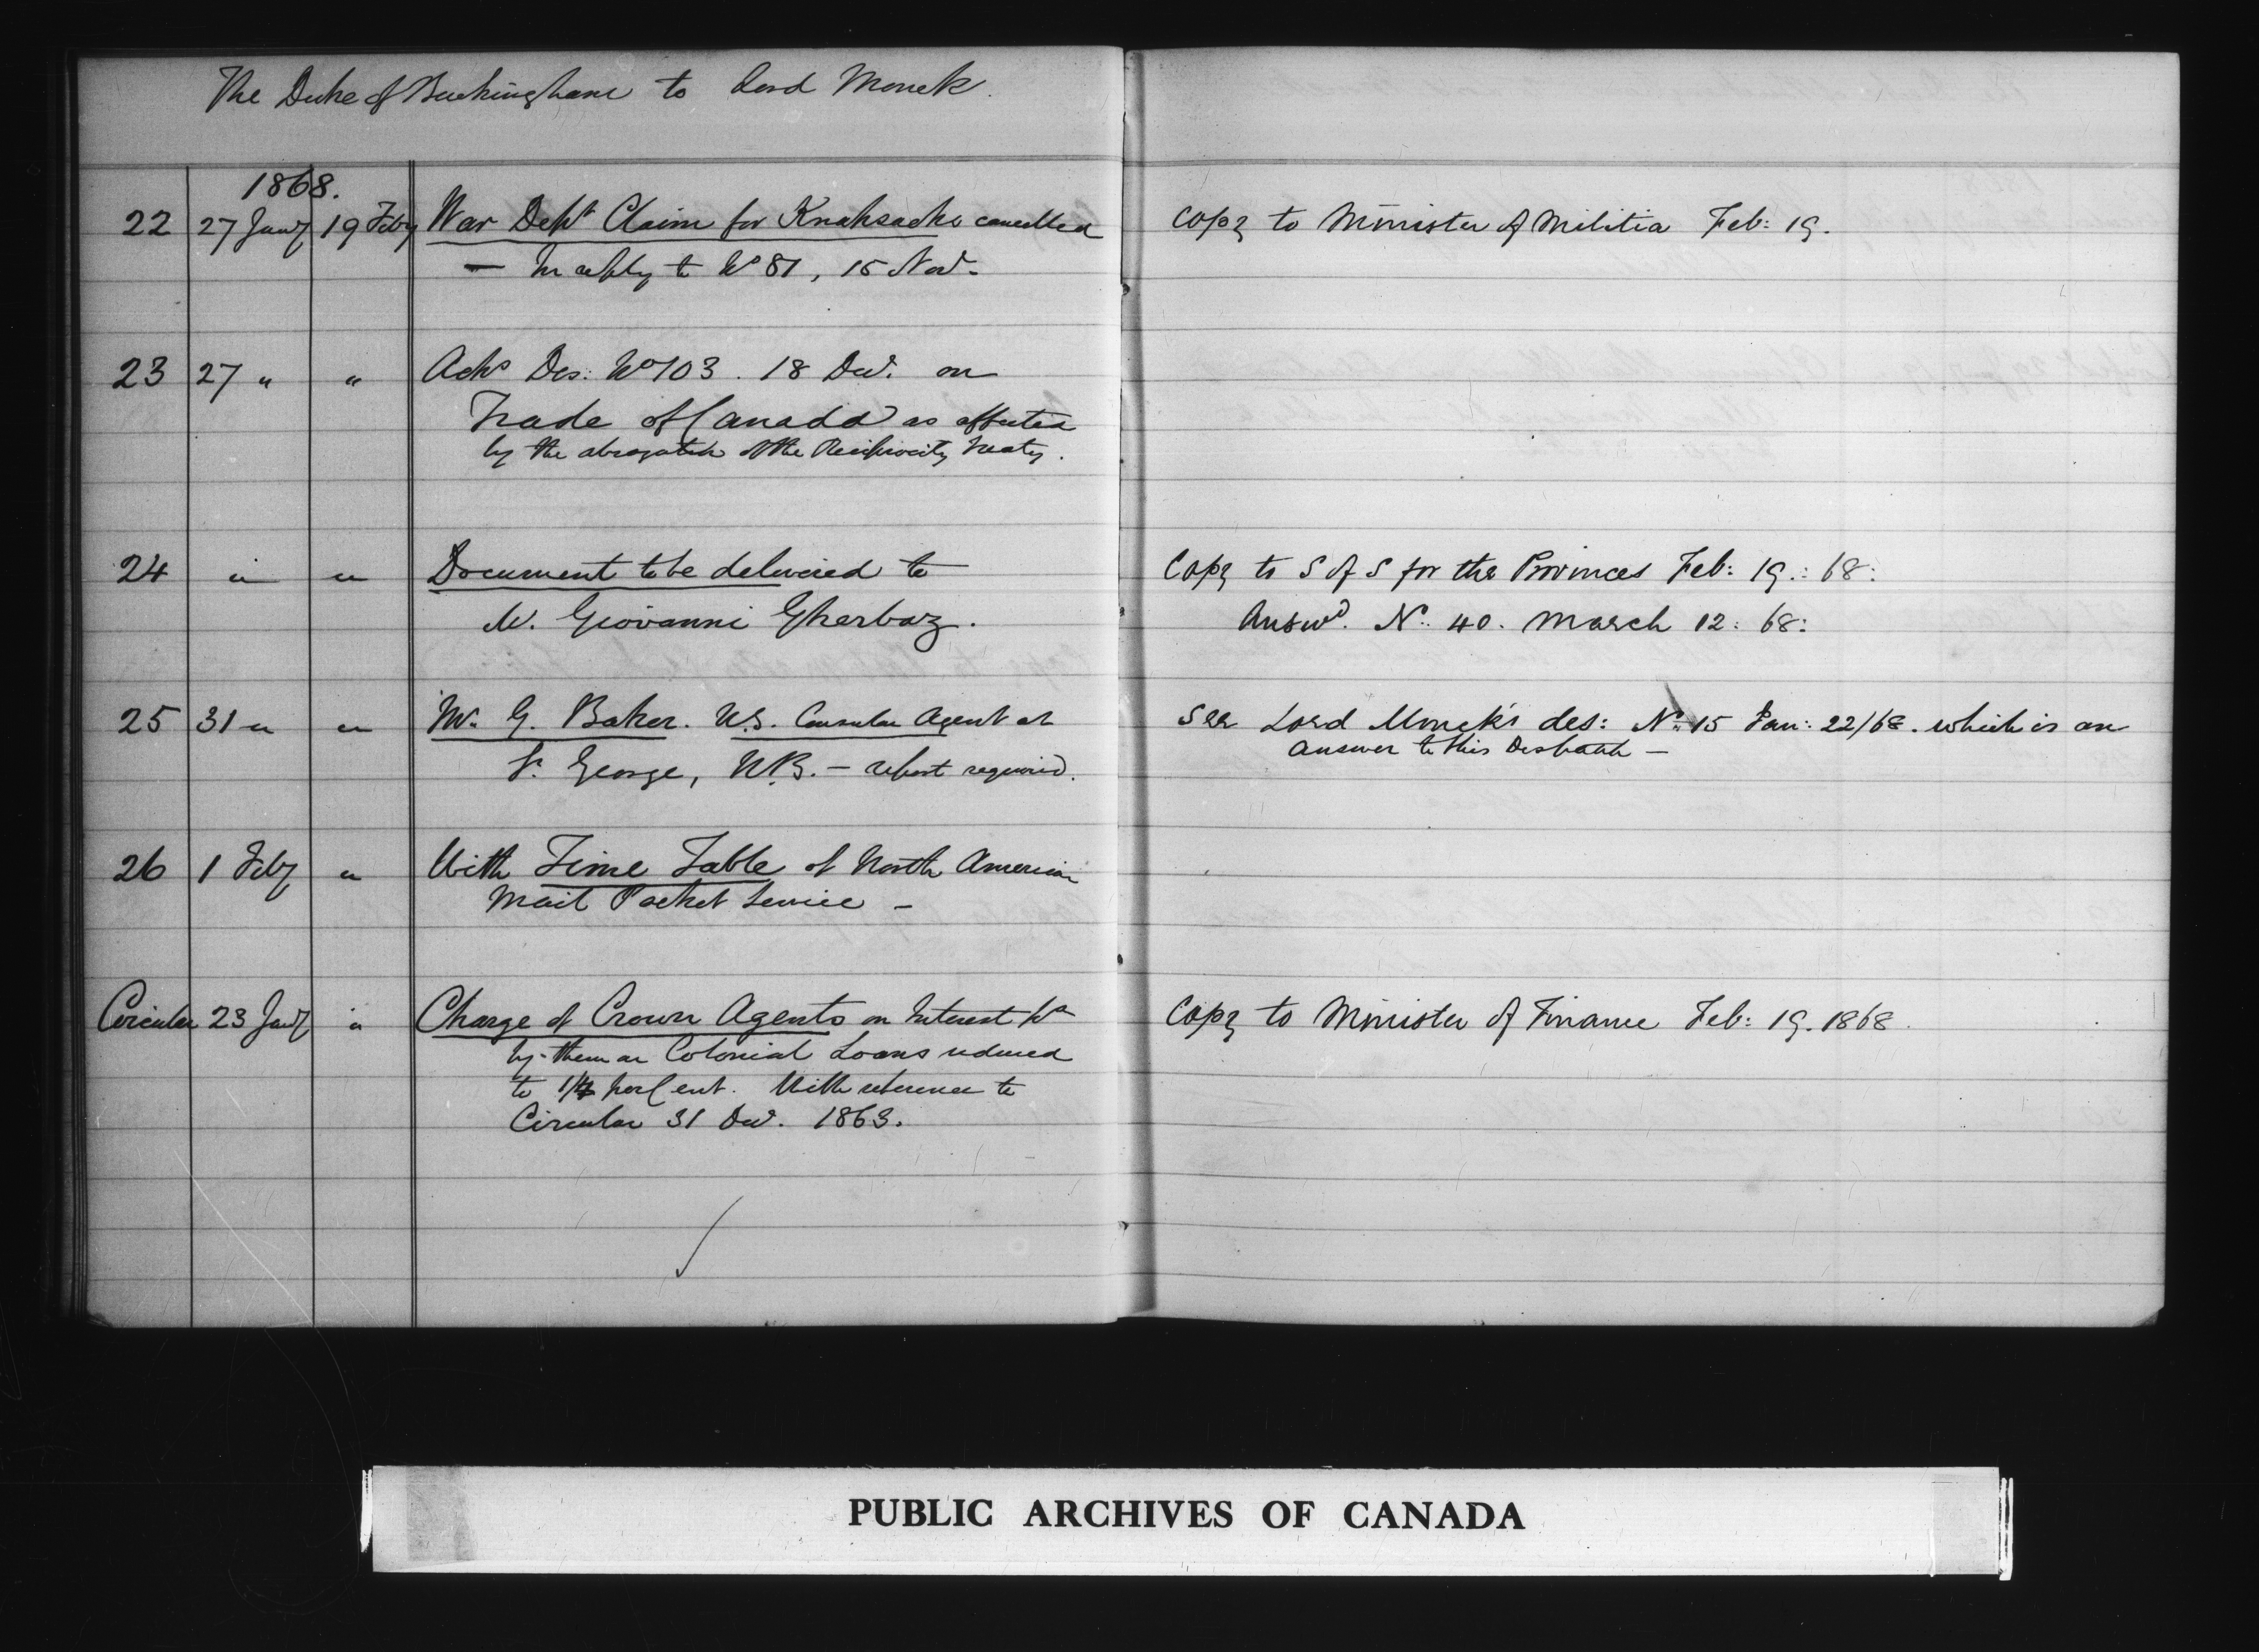 The Duke of Buckingham to Lord Monck.
1868.
22 27 Jany 19 Feby War Dept Claim for Knapsacks cancelled Copy to Minister of Militia Feb: 19.
— In reply to No 81, 15 Nov.
23 27 " " Acks Des: No 103. 18 Dec. on
Trade of Canada as affected
by the abrogation of the Reciprocity Treaty.
24 " " Document to be delivered to Copy to S of S for the Provinces Feb: 19.: 68:
M. Giovanni Gherbaz. Answd. No: 40. March 12: 68:
25 31 " " Mr. G. Baker. U.S. Consular Agent at See Lord Monck's des: No: 15 Jan: 22/68. which is an
St. George, N.B. — report required. answer to this Despatch —
26 1 Feby " With Time Table of North American
Mail Packet Service —
Circular 23 Jany " Charge of Crown Agents on Interest pd Copy to Minister of Finance Feb: 19. 1868.
by them on Colonial Loans reduced
to 1/4 per Cent. With reference to
Circular 31 Dec. 1863.
PUBLIC ARCHIVES OF CANADA